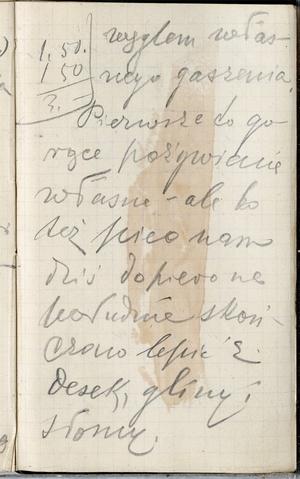 1,50.
1 50
3.
węglem włas-
nego gaszenia.
Pierwsze to go-
rące pożywienie
własne - ale bo
też piec nam
dziś dopiero na
południe skoń-
czono lepić z
desek, gliny i
słomy.